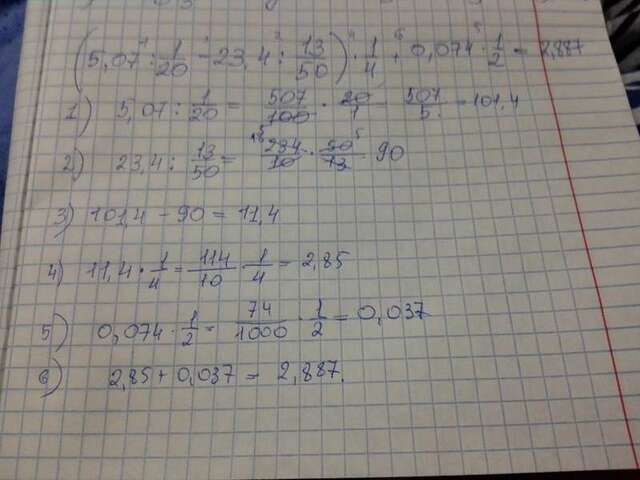 (5,07 : 1/20 - 23,4 : 13/50) · 1/4 + 0,074 · 1/2 = 2,887
1) 5,07 : 1/20 = 507/100 · 20/1 = 507/5 = 101,4
2) 23,4 : 13/50 = 234/10 · 50/13 = 90
3) 101,4 - 90 = 11,4
4) 11,4 · 1/4 = 114/10 · 1/4 = 2,85
5) 0,074 · 1/2 = 74/1000 · 1/2 = 0,037
6) 2,85 + 0,037 = 2,887.